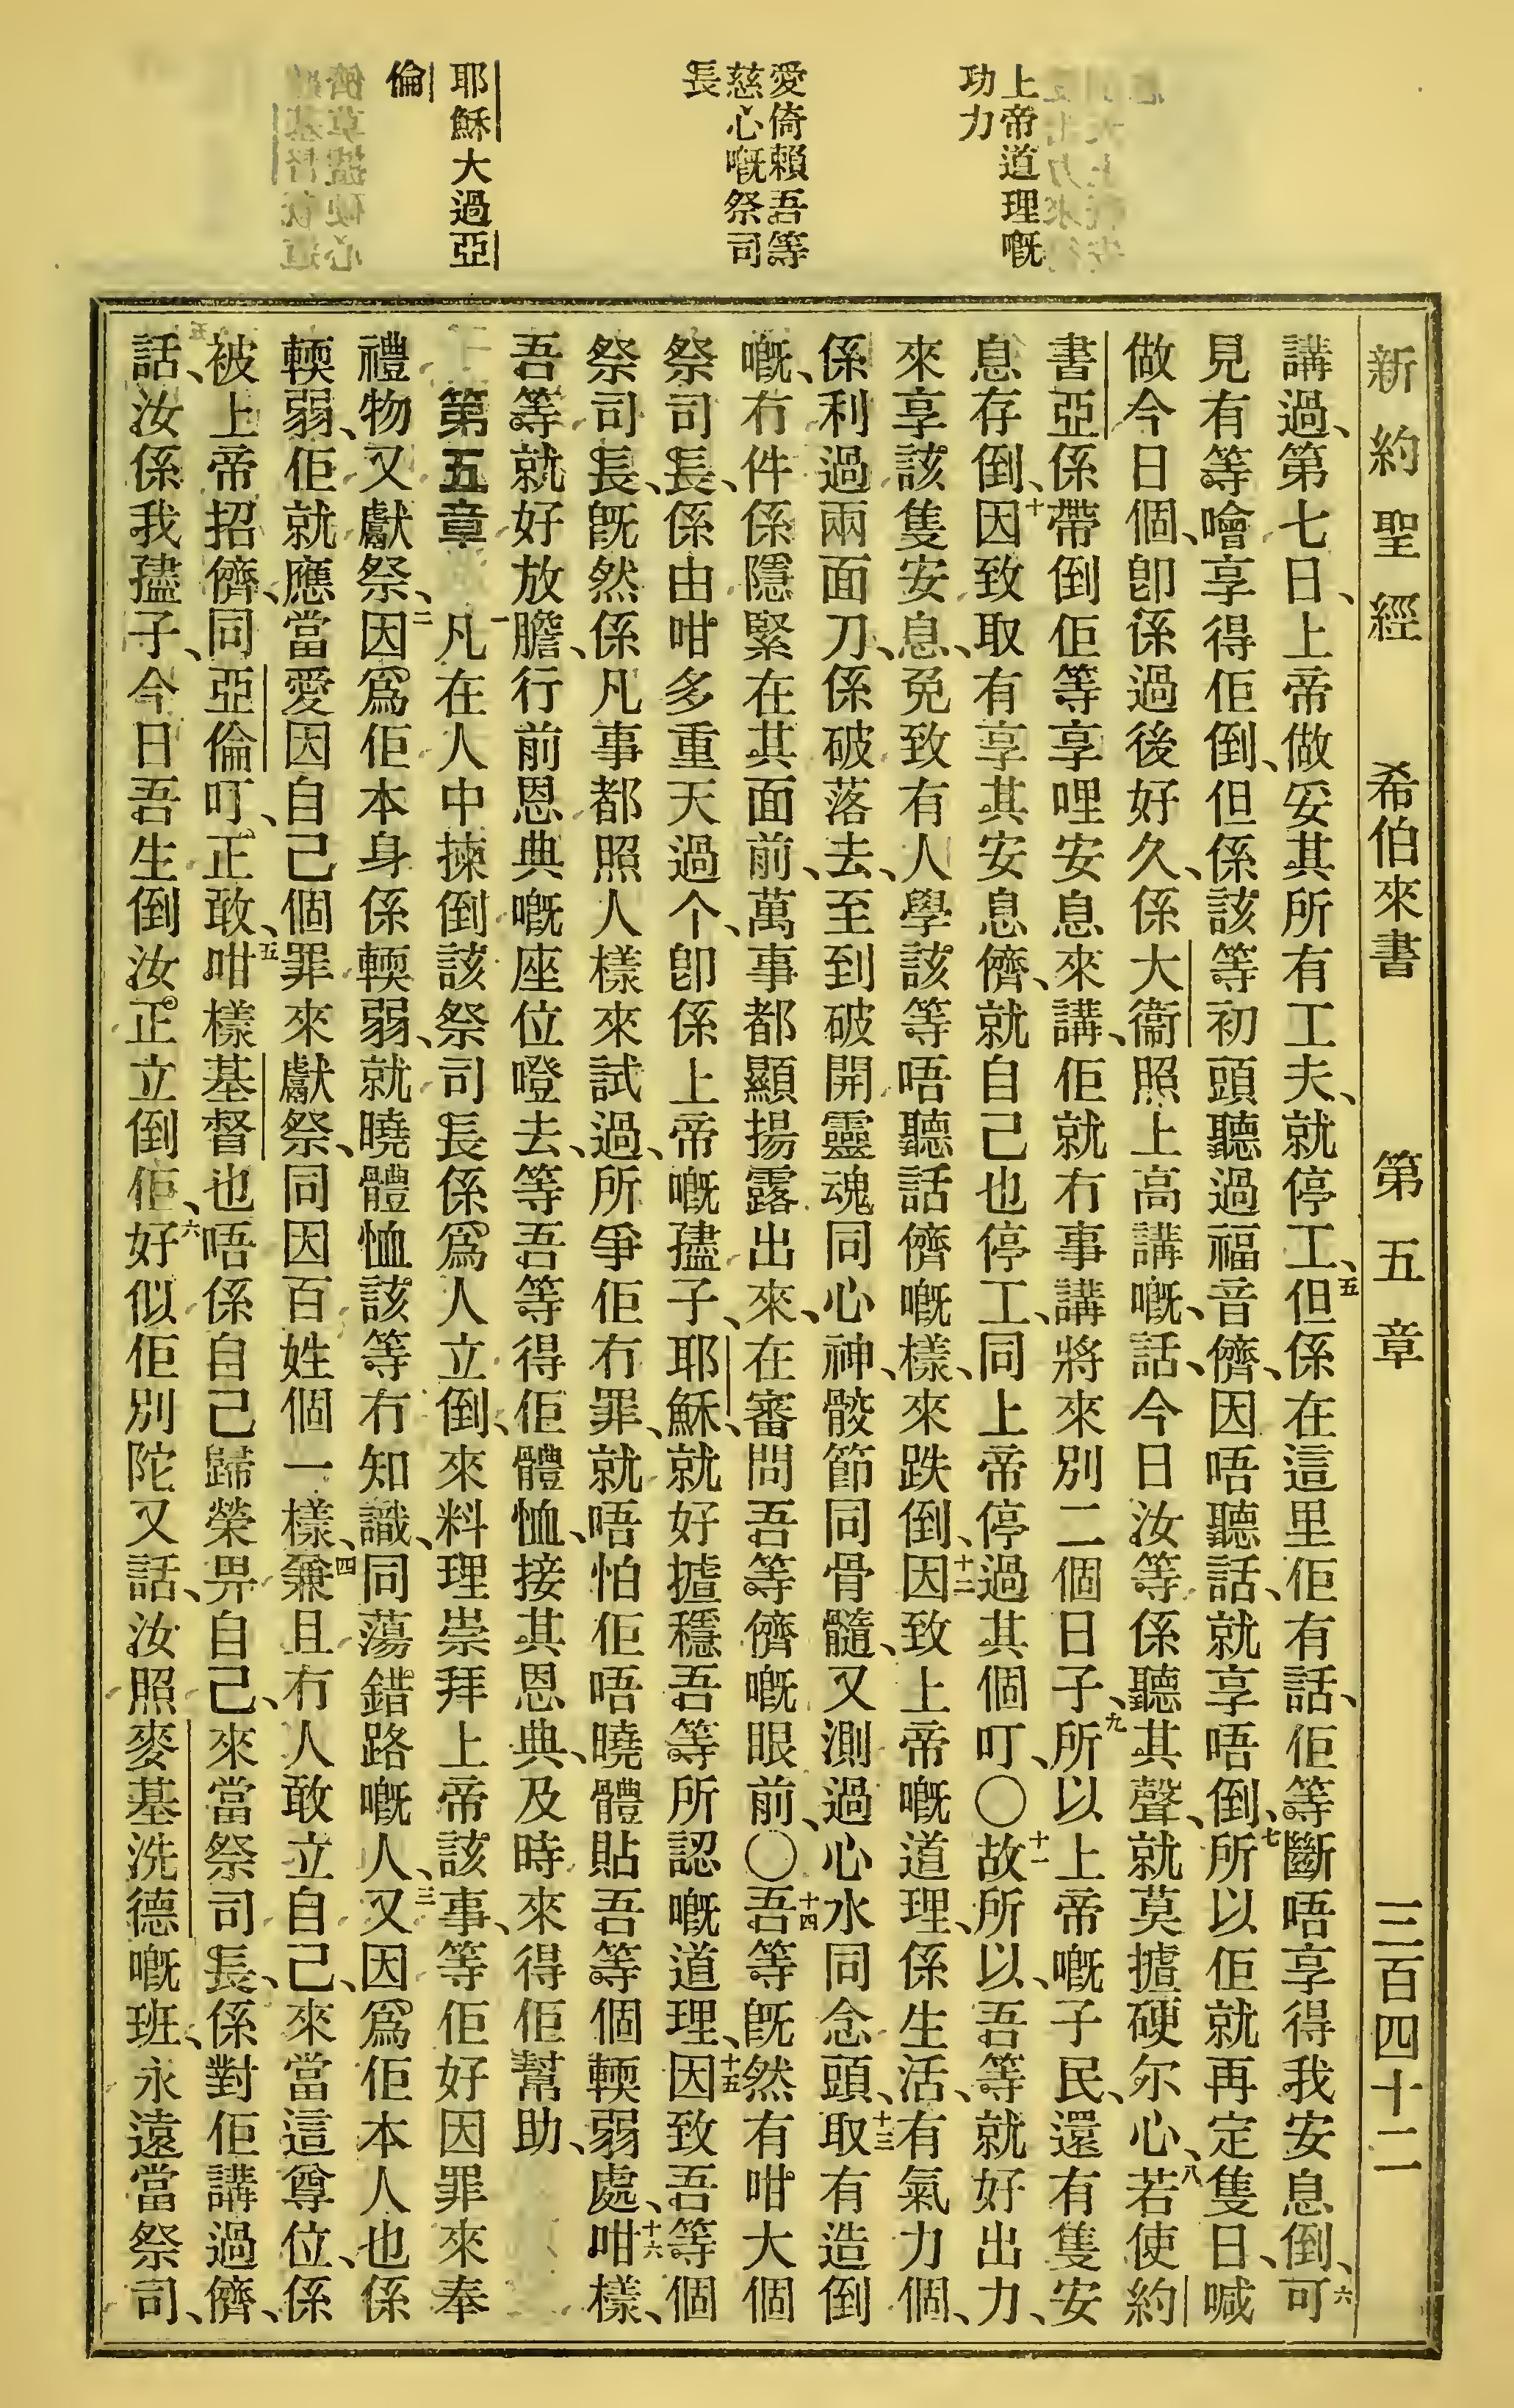 上帝道理嘅
功力
愛倚賴吾等
慈心嘅祭司
長
耶穌大過亞
倫
新約聖經　希伯來書　第五章　三百四十二
講過、第七日、上帝做妥其所有工夫、就停工、五但係在這里佢有話、佢等斷唔享得我安息倒、六可
見有等噲享得佢倒、但係該等初頭聽過福音儕、因唔聽話、就享唔倒、七所以佢就再定隻日、喊
做今日個、卽係過後好久、係大衞照上高講嘅、話、今日汝等係聽其聲、就莫㨿硬尔心、八若使約
書亞係帶倒佢等享哩安息來講、佢就冇事講將來別二個日子、九所以上帝嘅子民、還有隻安
息存倒、十因致取有享其安息儕、就自己也停工、同上帝停過其個叮、〇十一故所以、吾等就好出力、
來享該隻安息、免致有人學該等唔聽話儕嘅樣、來跌倒、十二因致上帝嘅道理、係生活、有氣力個、
係利過兩面刀、係破落去、至到破開靈魂同心神、骹節同骨髓、又測過心水同念頭、十三取有造倒
嘅、冇件係隱緊在其面前、萬事都顯揚露出來、在審問吾等儕嘅眼前、〇十四吾等旣然有咁大個
祭司長、係由咁多重天過个、卽係上帝嘅孻子、耶穌、就好㨿穩吾等所認嘅道理、十五因致吾等個
祭司長、旣然係凡事都照人樣來試過、所爭佢冇罪、就唔怕佢唔曉體貼吾等個輭弱處、十六咁樣、
吾等就好放膽、行前恩典嘅座位嶝去、等吾等得佢體恤、接其恩典、及時來得佢幫助、
第五章　一凡在人中揀倒該祭司長、係爲人立倒、來料理崇拜上帝該事、等佢好因罪來奉
禮物、又獻祭、二因爲佢本身係輭弱、就曉體恤該等冇知識、同蕩錯路嘅人、三又因爲佢本人也係
輭弱、佢就應當愛因自己個罪來獻祭、同因百姓個一樣、四兼且冇人敢立自己、來當這尊位、係
被上帝招儕、同亞倫叮、正敢、五咁樣基督也唔係自己歸榮畀自己、來當祭司長、係對佢講過儕、
話、汝係我孻子、今日吾生倒汝、正立倒佢、六好似佢別陀又話、汝照麥基洗德嘅班、永遠當祭司、